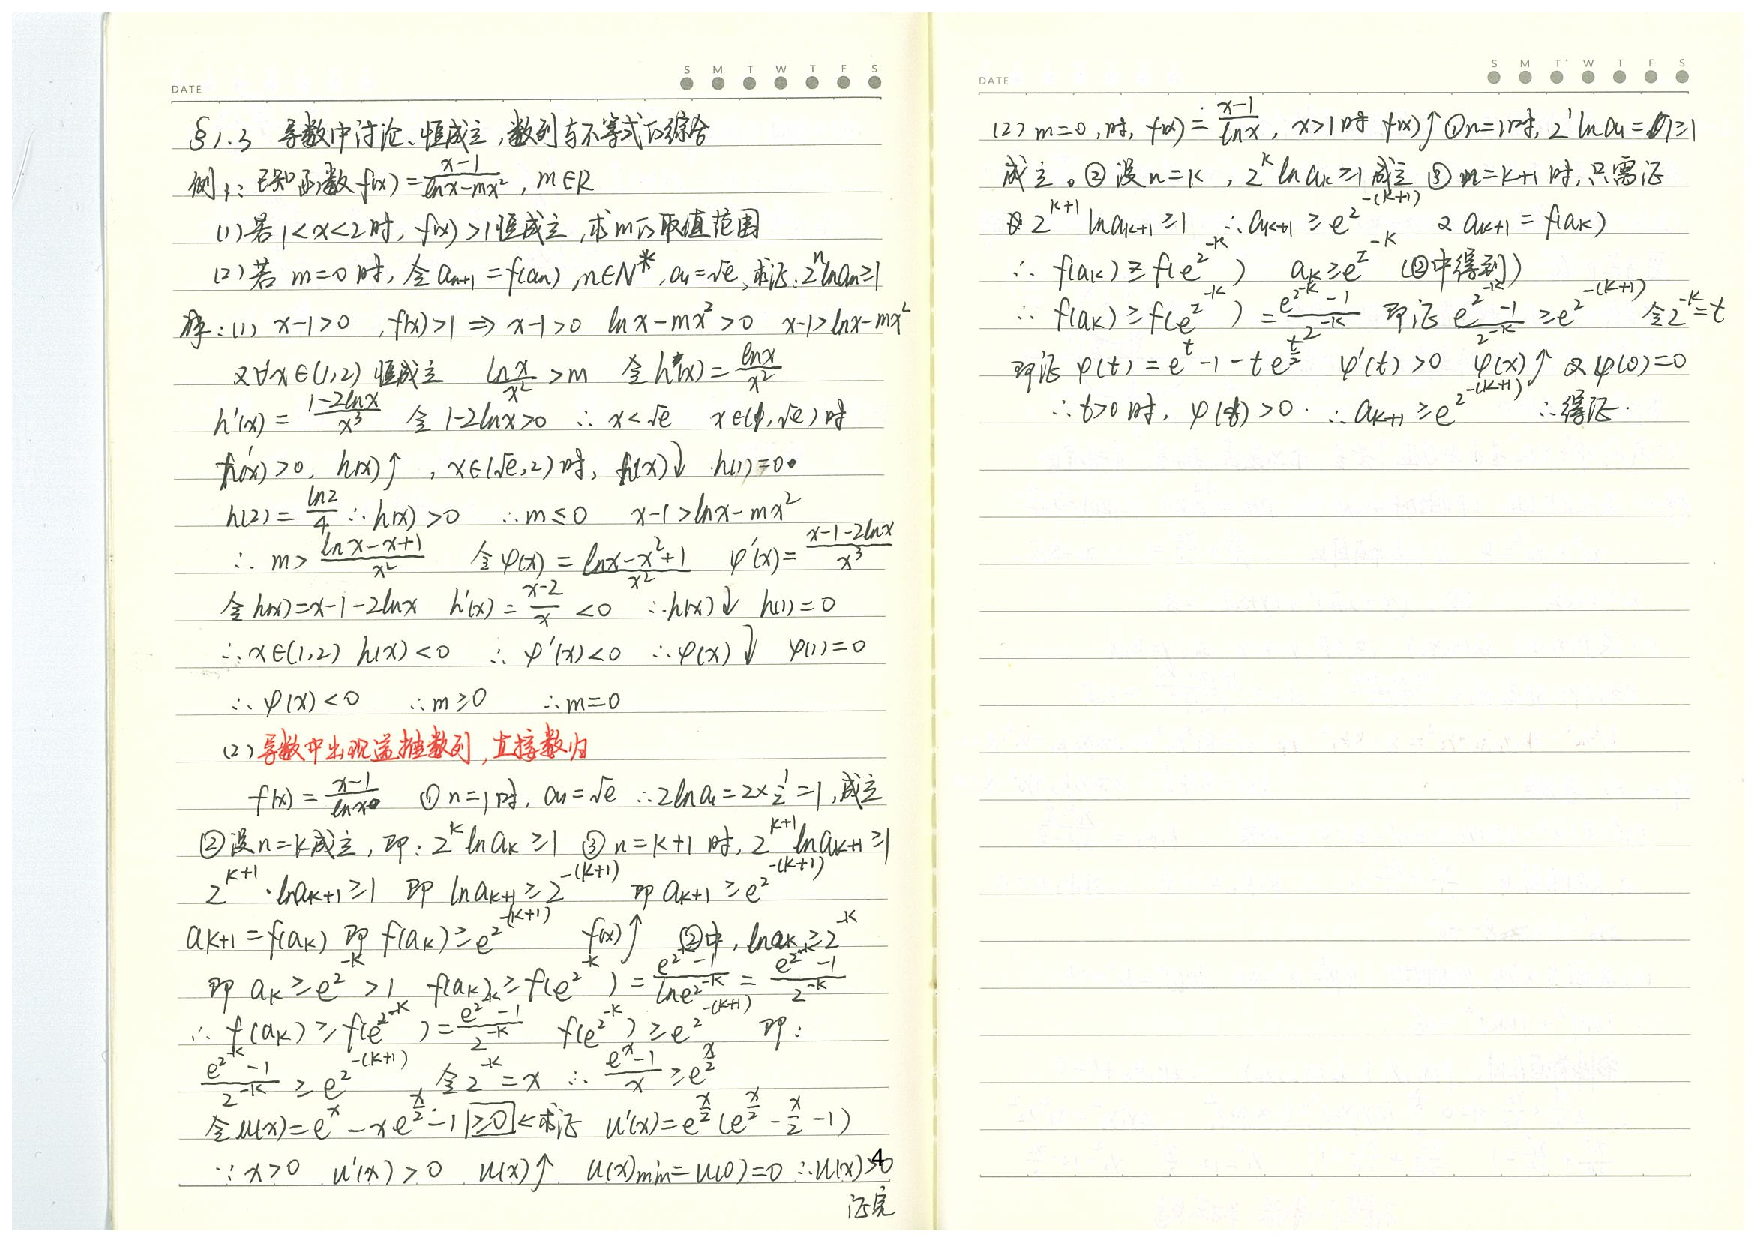 DATE S M T W T F S
§1.3 导数中讨论、恒成立,数列与不等式的综合
例1:已知函数f(x)=(x-1)/(lnx-mx²), m∈R
(1)若1<x<2时,f(x)>1恒成立,求m的取值范围
(2)若m=0时,令aₙ₊₁=f(aₙ),n∈N*,a₁=√e,求证:2ⁿlnaₙ≥1
解:(1) x-1>0 ,f(x)>1 ⇒ x-1>0 lnx-mx²>0 x-1>lnx-mx²
又∀x∈(1,2)恒成立 lnx/x²>m 令h(x)=lnx/x²
h'(x)=(1-2lnx)/x³ 令1-2lnx>0 ∴x<√e x∈(1,√e)时
h'(x)>0, h(x)↑ ,x∈(√e,2)时, h(x)↓ h(1)=0
h(2)=ln2/4 ∴h(x)>0 ∴m≤0 x-1>lnx-mx²
∴m>(lnx-x+1)/x² 令φ(x)=(lnx-x²+1)/x² φ'(x)=(x-1-2lnx)/x³
令h(x)=x-1-2lnx h'(x)=(x-2)/x<0 ∴h(x)↓ h(1)=0
∴x∈(1,2) h(x)<0 ∴φ'(x)<0 ∴φ(x)↓ φ(1)=0
∴φ(x)<0 ∴m≥0 ∴m=0
(2)导数中出现递推数列,直接数归
f(x)=(x-1)/lnx ①n=1时,a₁=√e ∴2lna₁=2×1/2=1,成立
②设n=k成立,即:2^k lna_k≥1 ③n=k+1时,2^(k+1) lna_(k+1)≥1
2^(k+1)·lna_(k+1)≥1 即lna_(k+1)≥2^(-(k+1)) 即a_(k+1)≥e^(2^(-(k+1)))
a_(k+1)=f(a_k) 即f(a_k)≥e^(2^(-(k+1))) f(x)↑ ②中,lna_k≥2^(-k)
即a_k≥e^(2^(-k))>1 f(a_k)≥f(e^(2^(-k)))=(e^(2^(-k))-1)/(lne^(2^(-k)))=(e^(2^(-k))-1)/2^(-k)
∴f(a_k)≥f(e^(2^(-k)))=(e^(2^(-k))-1)/2^(-k) f(e^(2^(-k)))≥e^(2^(-(k+1))) 即:
(e^(2^(-k))-1)/2^(-k)≥e^(2^(-(k+1))) 令2^(-k)=x ∴(e^x-1)/x≥e^(x/2)
令u(x)=e^x-xe^(x/2)-1 ≥0<求证 u'(x)=e^(x/2)(e^(x/2)-x/2-1)
∵x>0 u'(x)>0 u(x)↑ u(x)min=u(0)=0 ∴u(x)>0
证完
DATE S M T W T F S
(2)m=0,时,f(x)=(x-1)/lnx, x>1时 f(x)↑ ①n=1时,2¹lna₁=1≥1
成立。②设n=k,2^k lna_k≥1成立 ③n=k+1时,只需证
2^(k+1) lna_(k+1)≥1 ∴a_(k+1)≥e^(2^(-(k+1))) 又a_(k+1)=f(a_k)
∴f(a_k)≥f(e^(2^(-k))) a_k≥e^(2^(-k)) (②中得到)
∴f(a_k)≥f(e^(2^(-k)))=(e^(2^(-k))-1)/2^(-k) 即证(e^(2^(-k))-1)/2^(-k)≥e^(2^(-(k+1))) 令2^(-k)=t
即证φ(t)=e^t-1-te^(t/2) φ'(t)>0 φ(x)↑ 又φ(0)=0
∴t>0时,φ(t)>0 ∴a_(k+1)≥e^(2^(-(k+1))) ∴得证.